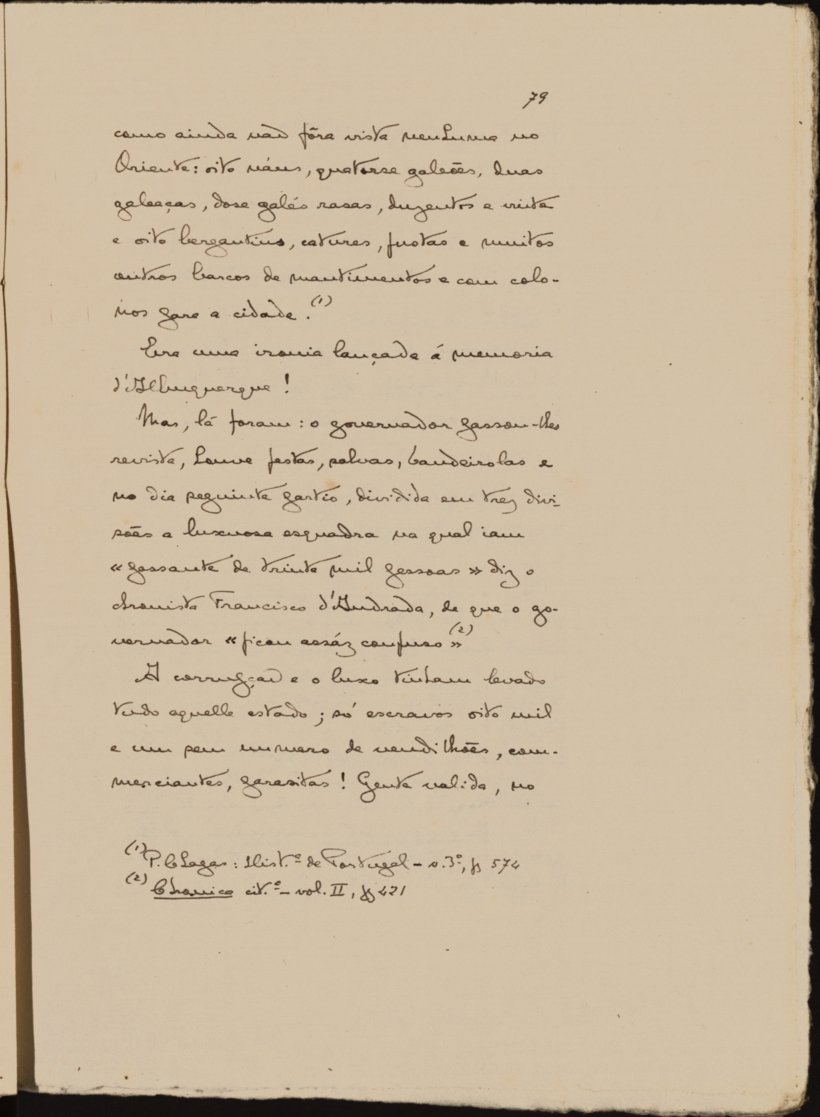 79
como ainda não fôra vista nenhuma no
Oriente: oito náus, quatorse galeões, duas
galeaças, dose galés rasas, duzentos e vinte
e oito bergantins, catures, fustas e muitos
outros barcos de mantimentos e com colo-
nos para a cidade.(1)
Era uma ironia lançada á memoria
d'Albuquerque!
Mas, lá foram: o governador passou-lhes
revista, houve festas, salvas, bandeirolas e
no dia seguinte partio, dividida em trez divi-
sões a luxuosa esquadra na qual iam
«passante de trinta mil pessoas» diz o
chronista Francisco d'Andrada, de que o go-
vernador «ficou assáz confuso»(2)
A corrupção e o luxo tinham levado
tudo aquelle estado; só escravos oito mil
e um sem numero de vendilhões, com-
merciantes, parasitas! Gente valida, no
(1) P. Chagas: Hist.ª de Portugal - v. 3º, pg 574
(2) Chronica cit.ª - vol. II, pg 421